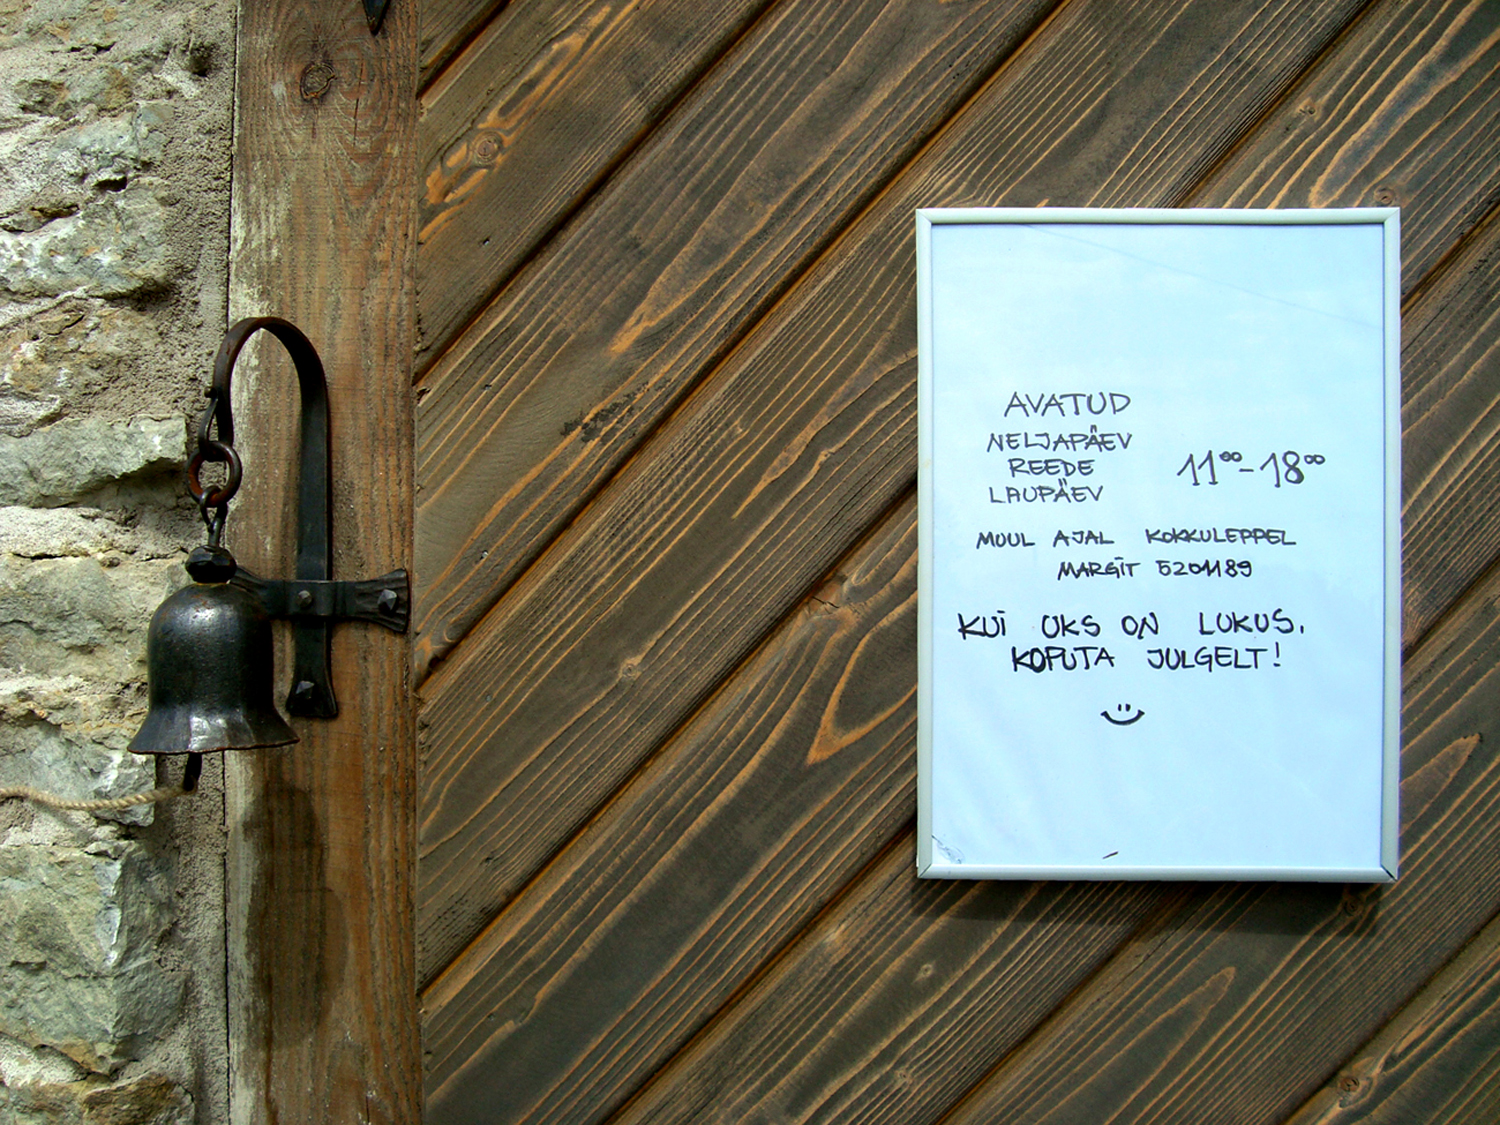 AVATUD
NELJAPÄEV
REEDE
LAUPÄEV
11⁰⁰-18⁰⁰
MUUL AJAL KOKKULEPPEL
MARGIT 5201189
KUI UKS ON LUKUS,
KOPUTA JULGELT!